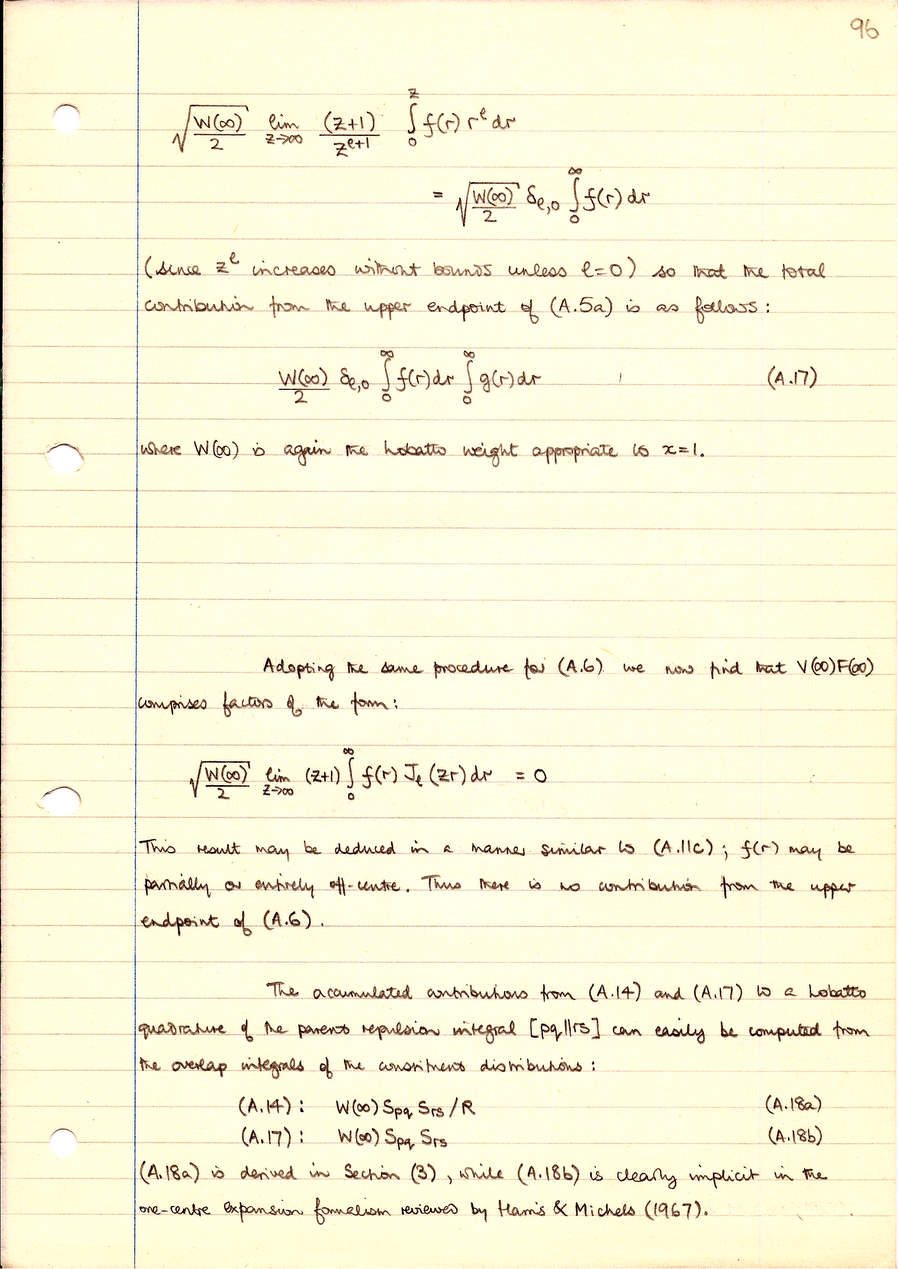 96
√(W(∞)/2) lim z→∞ (z+1)/z^{ℓ+1} ∫₀^z f(r) r^ℓ dr
= √(W(∞)/2) δℓ,₀ ∫₀^∞ f(r) dr
(since z^ℓ increases without bounds unless ℓ=0) so that the total
contribution from the upper endpoint of (A.5a) is as follows:
W(∞)/2 δℓ,₀ ∫₀^∞ f(r)dr ∫₀^∞ g(r)dr (A.17)
where W(∞) is again the Lobatto weight appropriate to x=1.
Adopting the same procedure for (A.6) we now find that V(∞)F(∞)
comprises factors of the form:
√(W(∞)/2) lim z→∞ (z+1) ∫₀^∞ f(r) Jℓ(zr) dr = 0
This result may be deduced in a manner similar to (A.11c); f(r) may be
partially or entirely off-centre. Thus there is no contribution from the upper
endpoint of (A.6).
The accumulated contributions from (A.14) and (A.17) to a Lobatto
quadrature of the parent repulsion integral [pq||rs] can easily be computed from
the overlap integrals of the constituent distributions:
(A.14): W(∞) Spq Srs / R (A.18a)
(A.17): W(∞) Spq Srs (A.18b)
(A.18a) is derived in Section (3), while (A.18b) is clearly implicit in the
one-centre expansion formalism reviewed by Harris & Michels (1967).